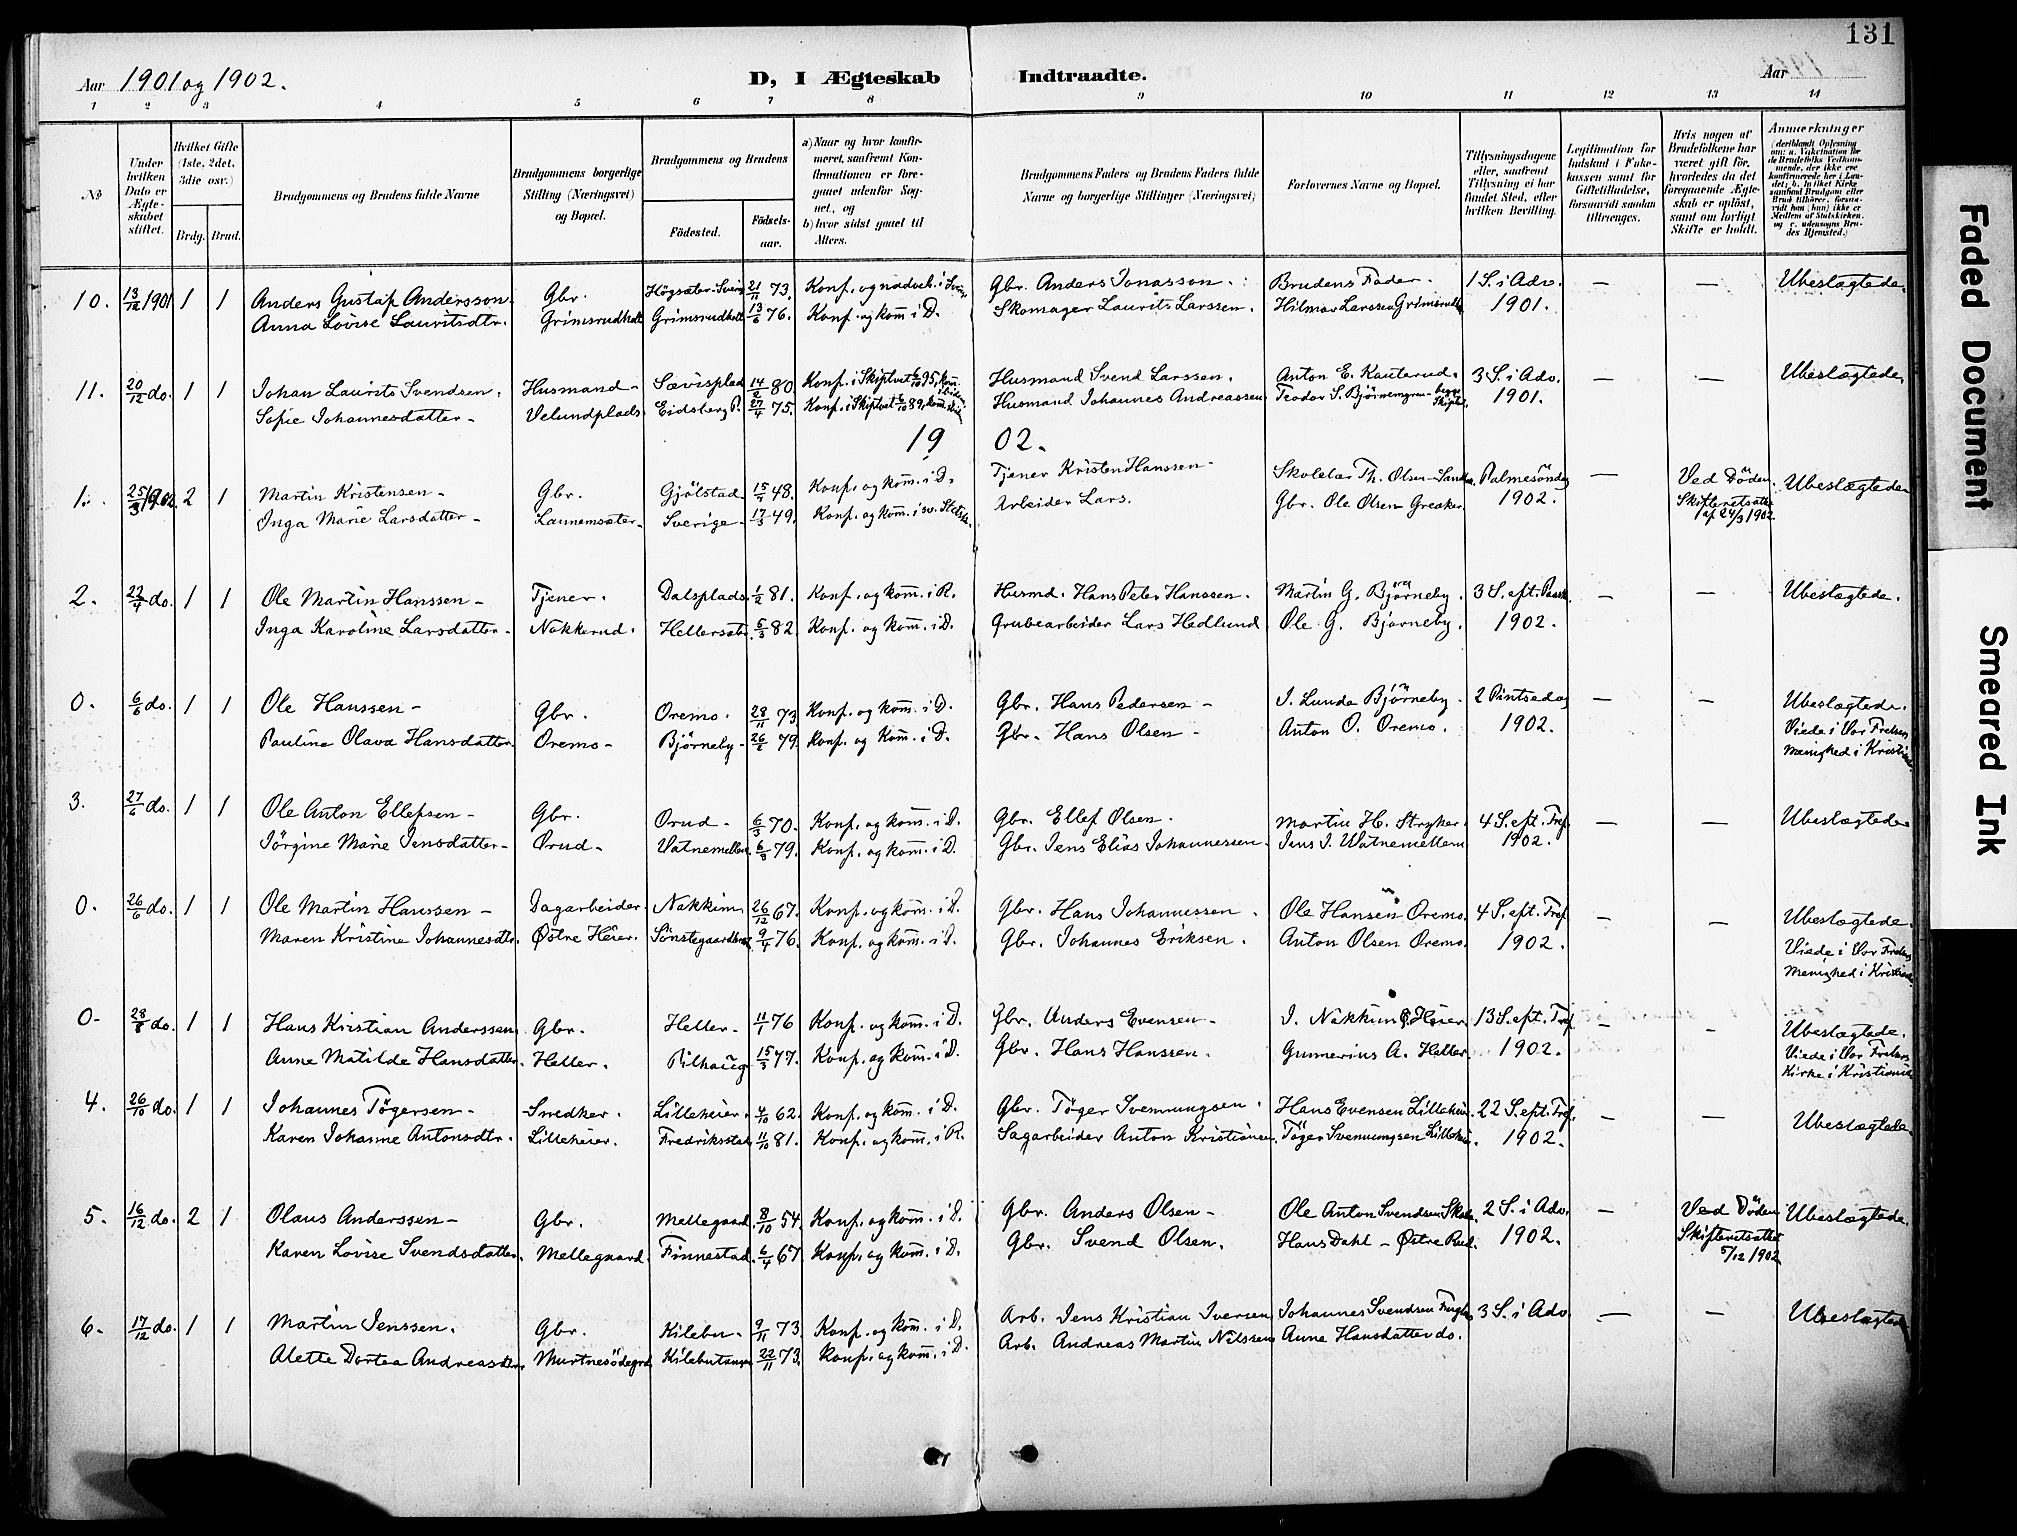 131
Aar 1901 og 1902.
D, I Ægteskab Indtraadte.
Aar
1 2 3 4 5 6 7 8 9 10 11 12 13 14
№
Under hvilken Dato er Ægteskabet stiftet.
Hvilket Gifte (1ste, 2det, 3die osv.)
Brdg. Brud.
Brudgommens og Brudens fulde Navne
Brudgommens borgerlige Stilling (Næringsvei) og Bopæl.
Brudgommens og Brudens
Födested. Födsels-aar.
a) Naar og hvor konfirmeret, saafremt Konfirmationen er foregaaet udenfor Sognet, og
b) hvor sidst gaaet til Alters.
Brudgommens Faders og Brudens Faders fulde Navne og borgerlige Stillinger (Næringsvei)
Forlovernes Navne og Bopæl.
Tillysningsdagene eller, saafremt Tillysning ei har fundet Sted, efter hvilken Bevilling.
Legitimation for Indskud i Enkekassen samt for Giftetilladelse, forsaavidt saadan tiltrænges.
Hvis nogen af Brudefolkene har været gift för, hvorledes da det foregaaende Ægteskab er oplöst, samt om lovligt Skifte er holdt.
Anmærkninger (deriblandt Oplysning om: a. Vakcination for de Brudefolks Vedkommende, der ikke ere konfirmerede her i Landet; b. hvilket Kirkesamfund Brudgom eller Brud tilhörer, forsaavidt han (hun) ikke er Medlem af Statskirken, og c. udensogns Brudes Hjemsted.)
10. 13/12 1901 1 1 Anders Gustaf Andersson. Gbr. Högsæter. Sverig 21/11 73. Konf. og nadveb. i Gbr. Anders Jonasson. Brudens Fader. 1 S. i Adv. — — Ubeslægtede.
Anna Lovise Lauritsdtr. Grimsrudholt Grimsrudholt 13/6 76. Konf. og kom̄ i D. Skomager Laurits Larssen. Hilmar Larssen Grimsrudh 1901.
11. 20/12 do. 1 1 Johan Laurits Svendsen. Husmand - Sævisplad 14/2 80 Konf. i Skiptvet 6/10 95, kom̄. Husmand Svend Larssen. Anton E. Kauterud. 3 S. i Adv. — — Ubeslægtede.
Sofie Johannesdatter - Velundplads Eidsberg P. 27/4 75. Konf. i Skiptvet 6/10 89, kom̄. Husmand Johannes Andreassen Teodor S. Björnemyren - begge Skiptv. 1901.
1902.
1. 25/3 1902 2 1 Martin Kristensen - Gbr. Gjölstad 15/ 48. Konf. og kom̄. i D. Tjener Kristen Hanssen - Skolelær Th. Olsen - Palmesöndag — Ved Döden. Ubeslægtede
Inga Marie Larsdatter - Launemsæter Sverige 17/3 49. Konf. og kom̄. i sv. Statsk. Arbeider Lars. Gbr. Ole Olsen Greaker 1902. Skifteretsattest
af 24/3 1902
2. 22/4 do. 1 1 Ole Martin Hanssen - Tjener. Dalsplads 1/2 81. Konf. og kom̄. i R. Husmd. Hans Peter Hanssen. Martin G. Björneby. 3 S. eft. Paask. — — Ubeslægtede.
Inga Karoline Larsdatter - Nakkerud. Hellersæt. 5/3 82. Konf. og kom̄. i D. Grubearbeider Lars Hedlund Ole G. Björneby. 1902.
0. 6/6 do. 1 1 Ole Hanssen - Gbr. Oremo. 28/11 73 Konf. og kom̄. i D. Gbr. Hans Pedersen - I. Lunde Björneby. 2 Pintsedag — — Ubeslægtede.
Pauline Olava Hansdatter. Oremo - Björneby - 26/2 79. Konf. og Kom̄. i D. Gbr. Hans Olsen - Anton O. Oremo. 1902. Viede i Vor Frelsers
menighed i Kristiania.
3. 27/6 do. 1 1 Ole Anton Ellefsen - Gbr. Örud - 6/3 70. Konf. og kom̄. i D. Gbr. Ellef Olsen. Martin H. Stryker. 4 S. eft. Tref. — — Ubeslægtede
Jörgine Marie Jensdatter - Örud - Vatnemellem 6/3 79. Konf. og kom̄. i D. Gbr. Jens Elias Johannessen. Jens J. Watnemellem 1902.
0. 26/6 do. 1 1 Ole Martin Hanssen - Dagarbeider. Nakkim 26/12 67. Konf. og kom̄. i D. Gbr. Hans Johannessen. Ole Hansen Oremo. 4 S. eft. Tref. — — Ubeslægtede.
Maren Kristine Johannesdtr. Østre Heier. Sönstegaardh 9/4 76. Konf. og kom̄. i D. Gbr. Johannes Eriksen. Anton Olsen Oremo. 1902. Viede i Vor Frelsers
menighed i Kristiania
0- 28/8 do. 1 1 Hans Kristian Anderssen Gbr. Heller - 11/1 76 Konf. og kom̄. i D. Gbr. Anders Evensen - I. Nakkim Ø. Heier. 13 S. eft. Tref — — Ubeslægtede.
Anne Matilde Hansdatter. Heller. Pilhaug 15/3 77. Konf. og kom̄. i D. Gbr. Hans Hanssen. Gunnerius A. Heller 1902. Viede i Vor Frelsers
Kirke i Kristiania
4. 26/10 do. 1 1 Johannes Tögersen - Snedker. Lilleheier. 4/10 62. Konf. og kom̄. i D. Gbr. Töger Svennungsen. Hans Evensen Lilleheier. 22 S. eft. Tref. — — Ubeslægtede.
Karen Johanne Antonsdtr. Lilleheier. Fredriksstad 11/10 81. Konf. og kom̄. i R. Sagarbeider Anton Kristiansen. Töger Svennungsen Lilleheier. 1902.
5. 16/12 do. 2 1 Olaus Anderssen - Gbr. Mellegaard. 8/10 54. Konf. og kom̄. i D. Gbr. Anders Olsen - Ole Anton Svendsen 2 S. i Adv. — Ved Döden Ubeslægtede.
Karen Lovise Svendsdatter. Mellegaard. Finnestad. 6/4 67 Konf. og kom̄. i D. Gbr. Svend Olsen. Hans Dahl - Østre Rud. 1902. Skifteretsattest
5/12 1902
6. 17/12 do. 1 1 Martin Jenssen. Gbr. Kilebu - 9/11 73. Konf. og kom̄. i D. Arb. Jens Kristian Iversen Johannes Svendsen 3 S. i Adv — — Ubeslægtede
Alette Dortea Andreasdtr. Murtnesödegrd Kilebutangen 22/11 73. Konf. og kom̄. i D. Arb. Andreas Martin Nilssen Anne Hansdatter do.
Faded Document
Smeared Ink